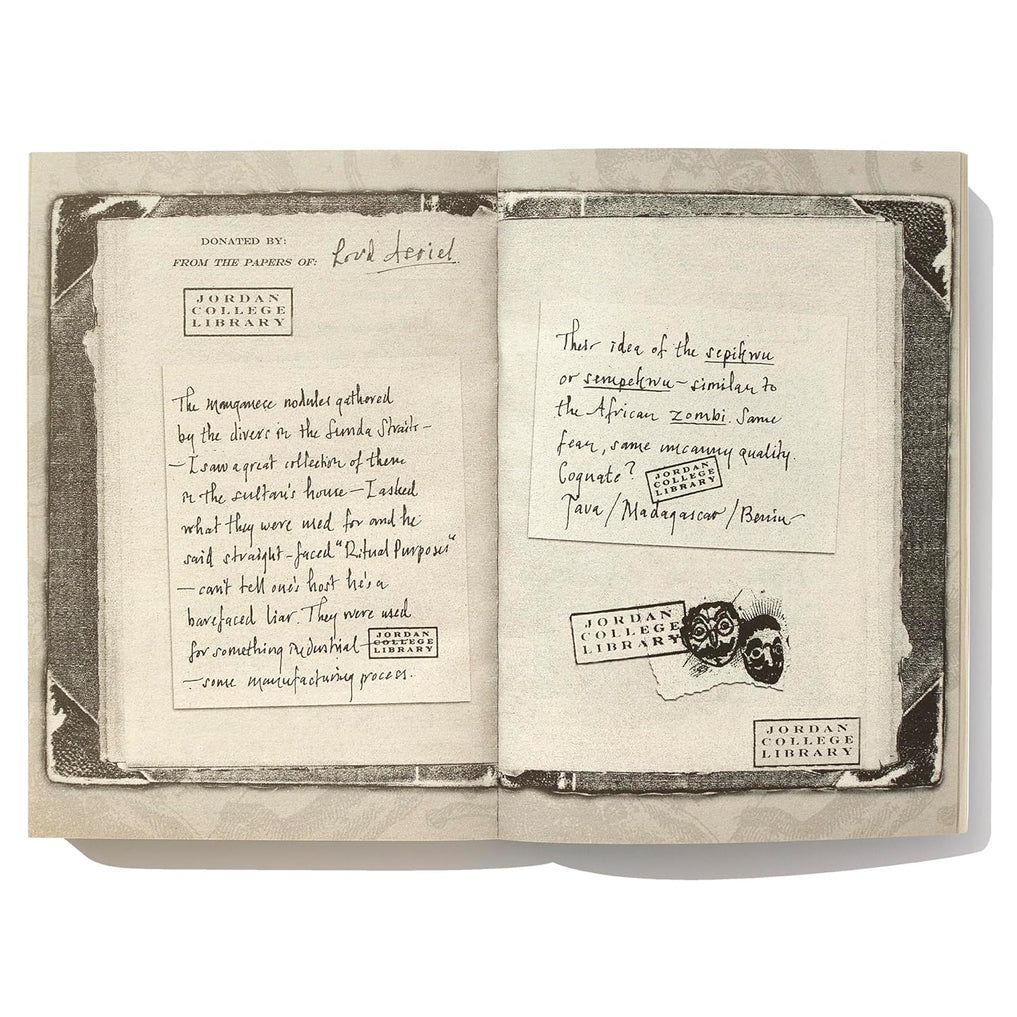 DONATED BY:
FROM THE PAPERS OF: Lord Asriel
JORDAN
COLLEGE
LIBRARY
The manganese nodules gathered
by the divers in the Sunda Straits –
– I saw a great collection of them
in the sultan's house – I asked
what they were used for and he
said straight-faced "Ritual Purposes"
– can't tell one's host he's a
barefaced liar. They were used
for something industrial
JORDAN
COLLEGE
LIBRARY
– some manufacturing process.
Their idea of the sepikwu
or sempekwu – similar to
the African zombi. Same
fear, same uncanny quality.
Cognate?
JORDAN
COLLEGE
LIBRARY
Java / Madagascar / Benin
JORDAN
COLLEGE
LIBRARY
JORDAN
COLLEGE
LIBRARY